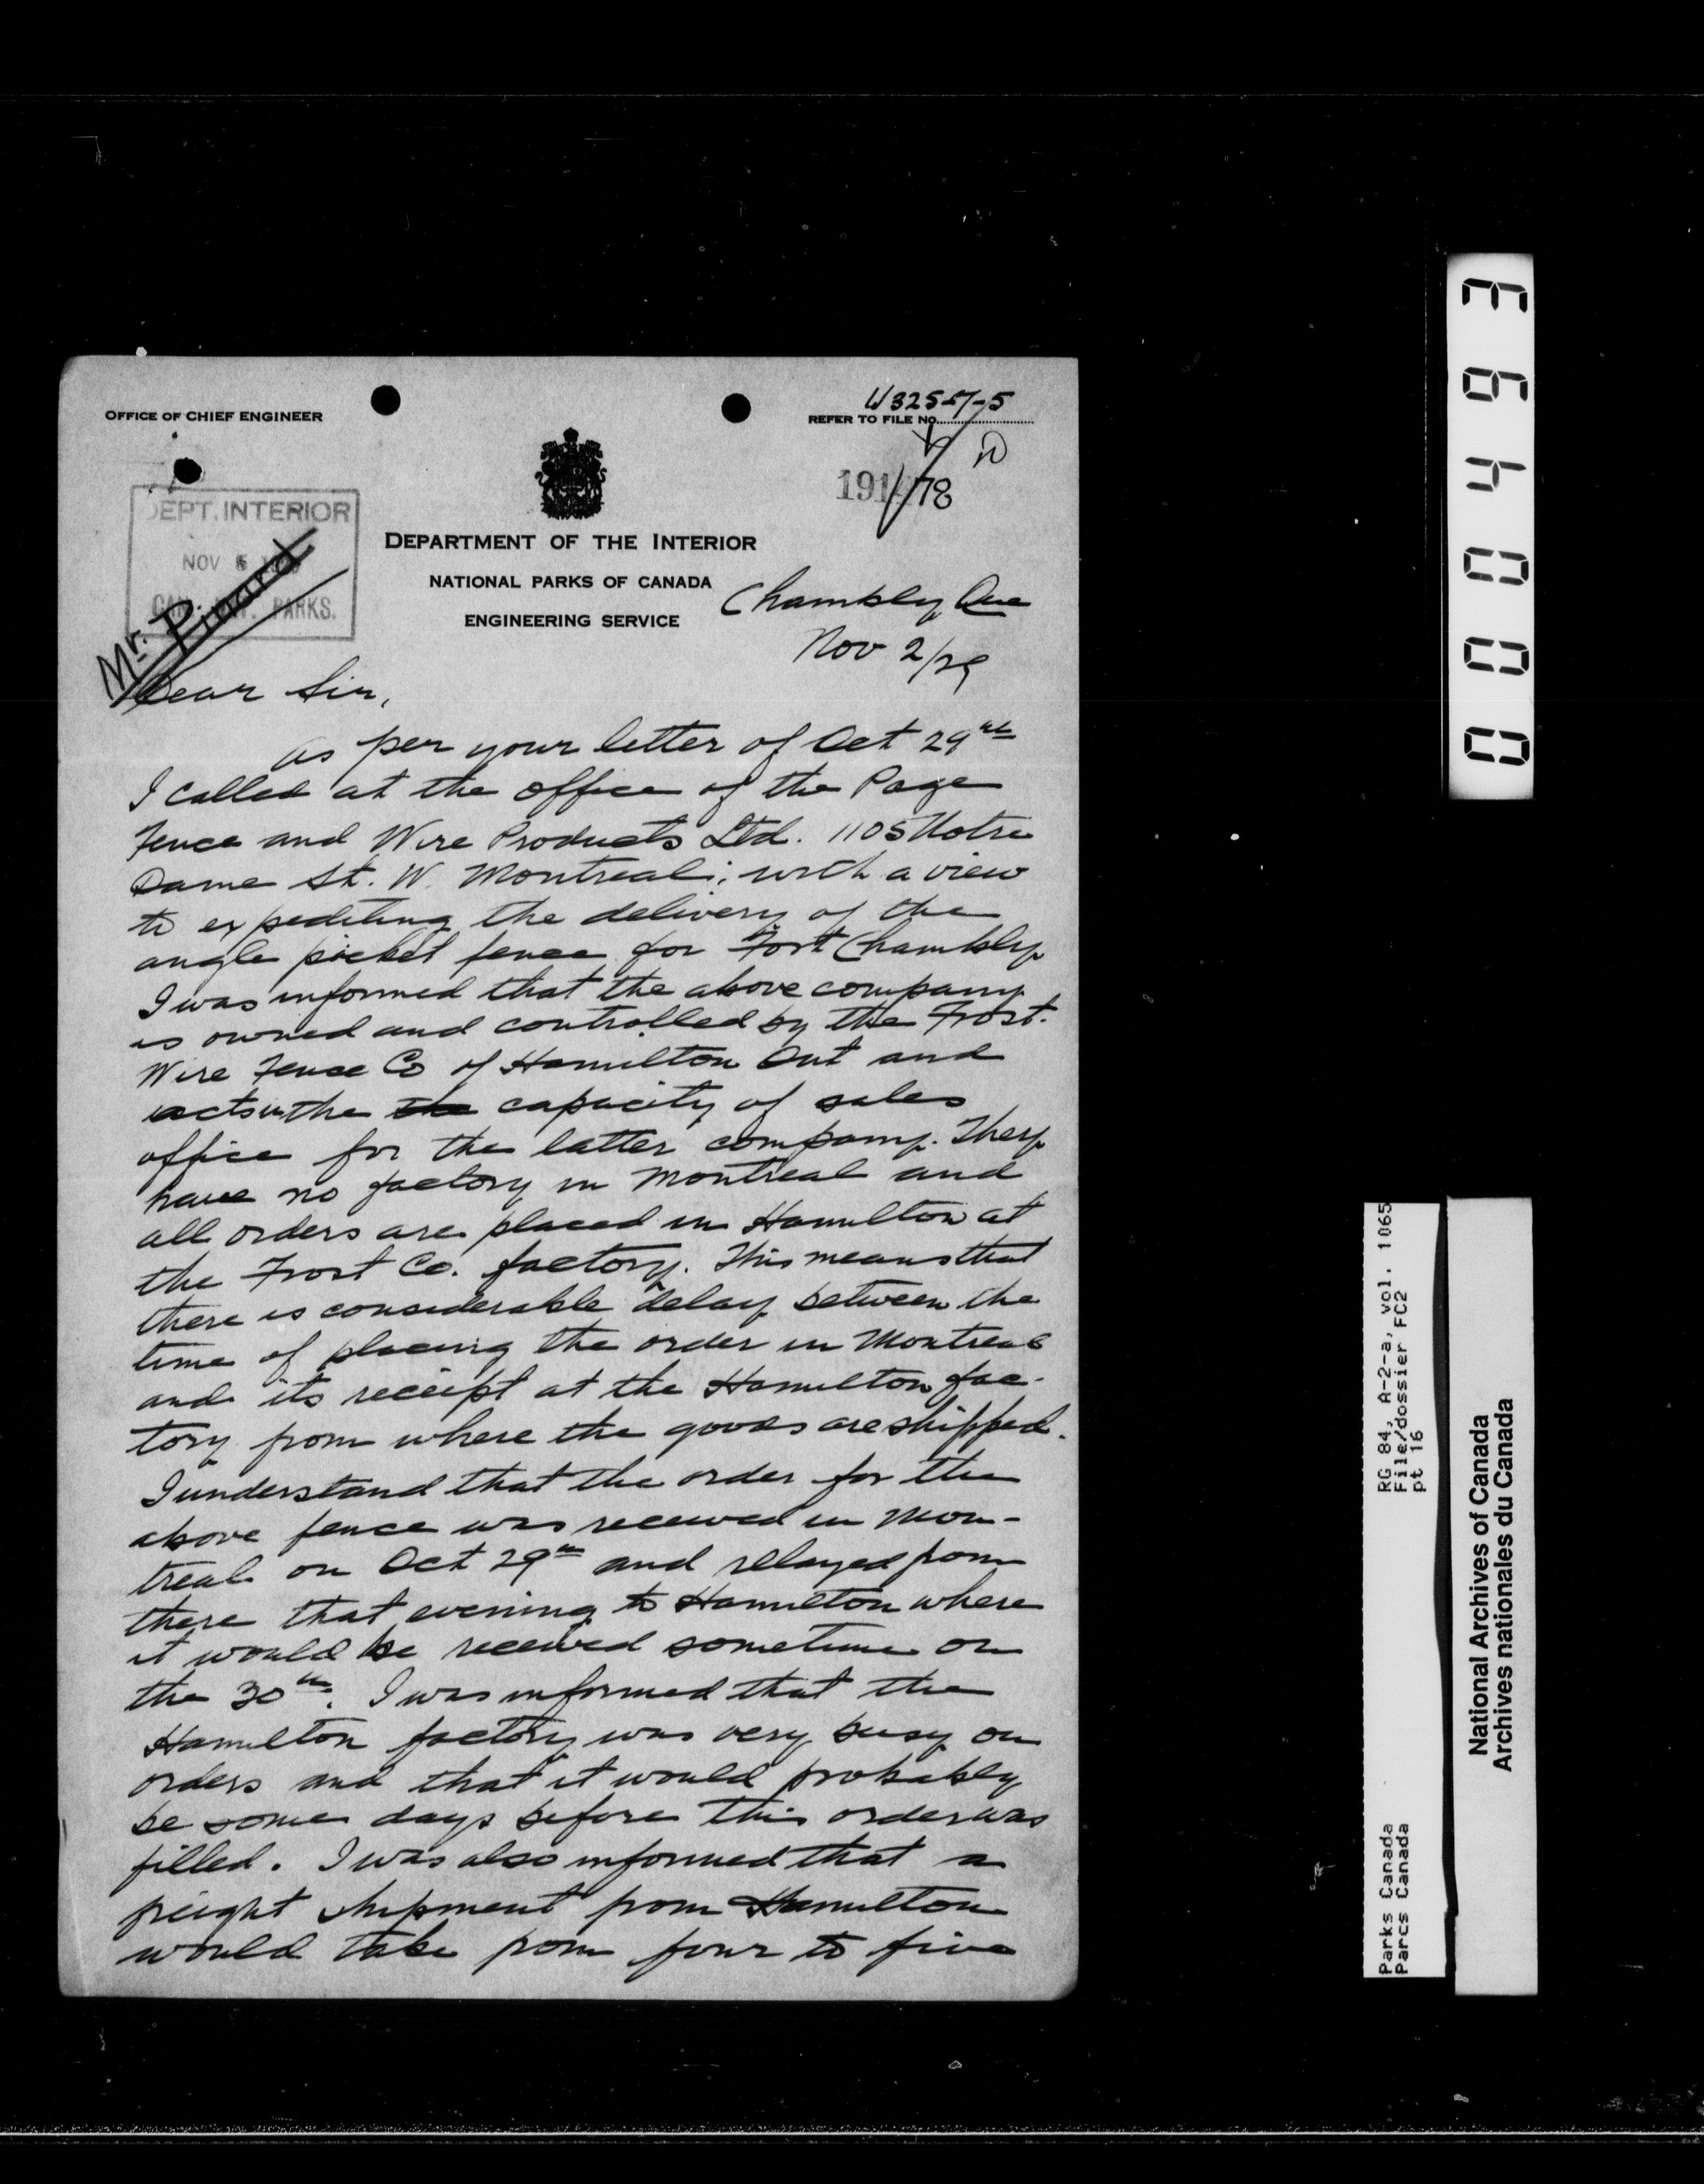 OFFICE OF CHIEF ENGINEER
REFER TO FILE NO.
DEPT. INTERIOR
NOV
PARKS.
Mr. Pinard
DEPARTMENT OF THE INTERIOR
NATIONAL PARKS OF CANADA
ENGINEERING SERVICE
Chambly Que
Nov 2/29
Dear Sir,
As per your letter of Oct 29th
I called at the office of the Page
Fence and Wire Products Ltd. 1105 Notre
Dame St. W. Montreal; with a view
to expediting the delivery of the
angle picket fence for Fort Chambly.
I was informed that the above company
is owned and controlled by the Frost
Wire Fence Co of Hamilton Ont and
acts in the the capacity of sales
office for the latter company. They
have no factory in Montreal and
all orders are placed in Hamilton at
the Frost Co. factory. This means that
there is considerable delay between the
time of placing the order in Montreal
and its receipt at the Hamilton fac-
tory from where the goods are shipped.
I understand that the order for the
above fence was received in Mon-
treal on Oct 29th and relayed from
there that evening to Hamilton where
it would be received sometime on
the 30th. I was informed that the
Hamilton factory was very busy on
orders and that it would probably
be some days before this order was
filled. I was also informed that a
freight shipment from Hamilton
would take from four to five
000493
RG 84, A-2-a, vol. 1065
File/dossier FC2
pt 16
Parks Canada
Parcs Canada
National Archives of Canada
Archives nationales du Canada